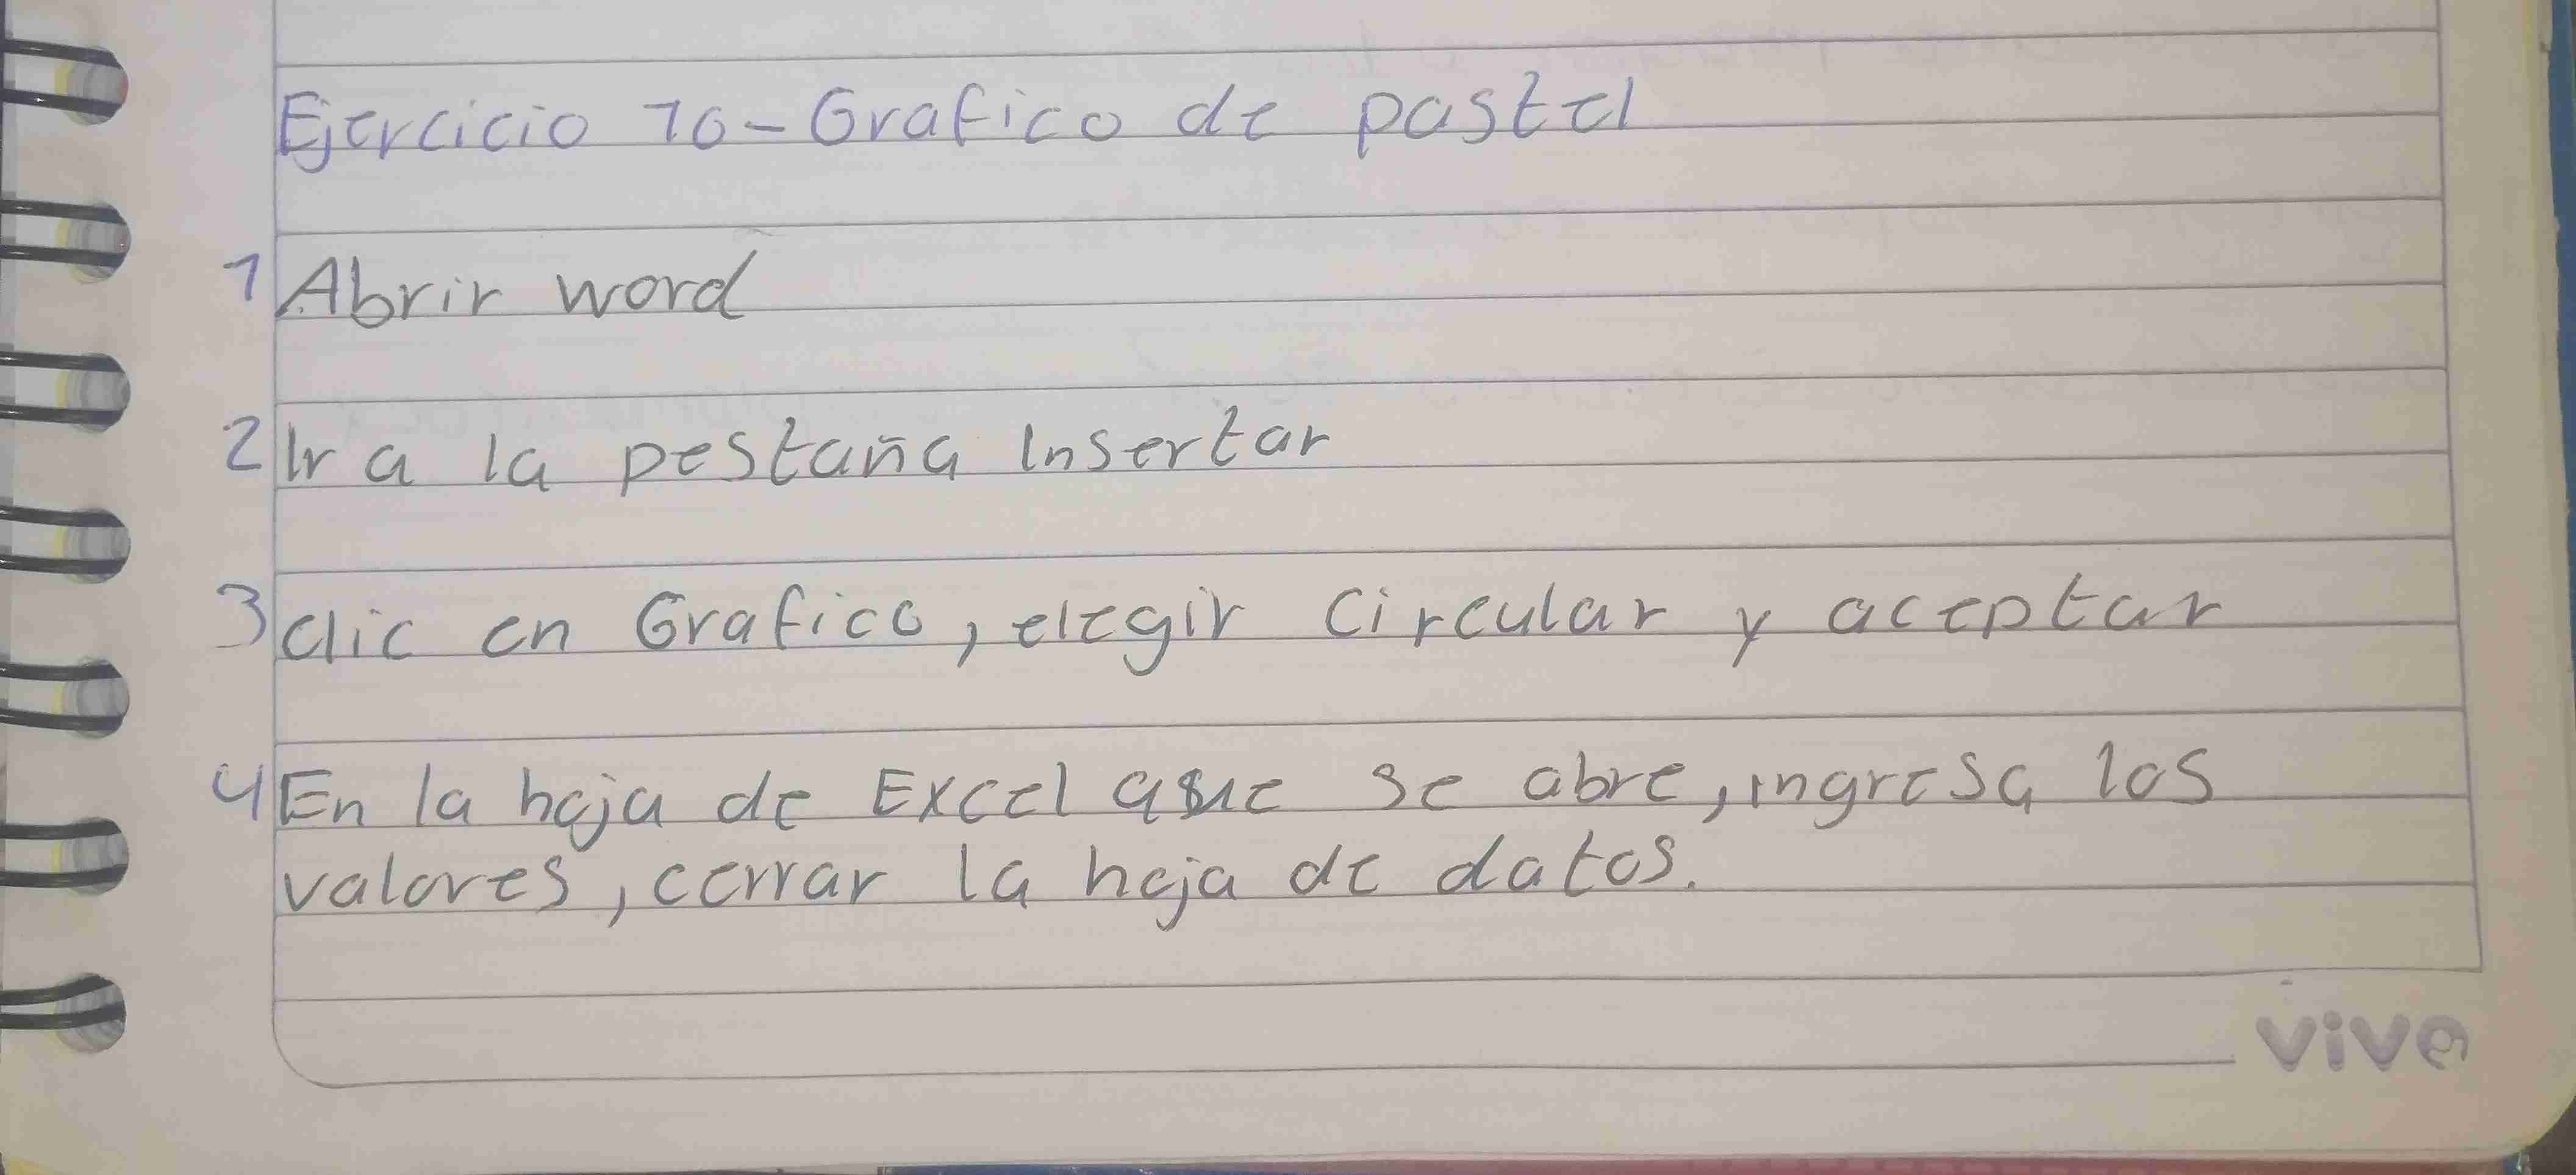 Ejercicio 10-Grafico de pastel
1 Abrir word
2 Ir a la pestaña Insertar
3 clic en Grafico, elegir Circular y aceptar
4 En la hoja de Excel que se abre, ingresa los
valores, cerrar la hoja de datos.
vive